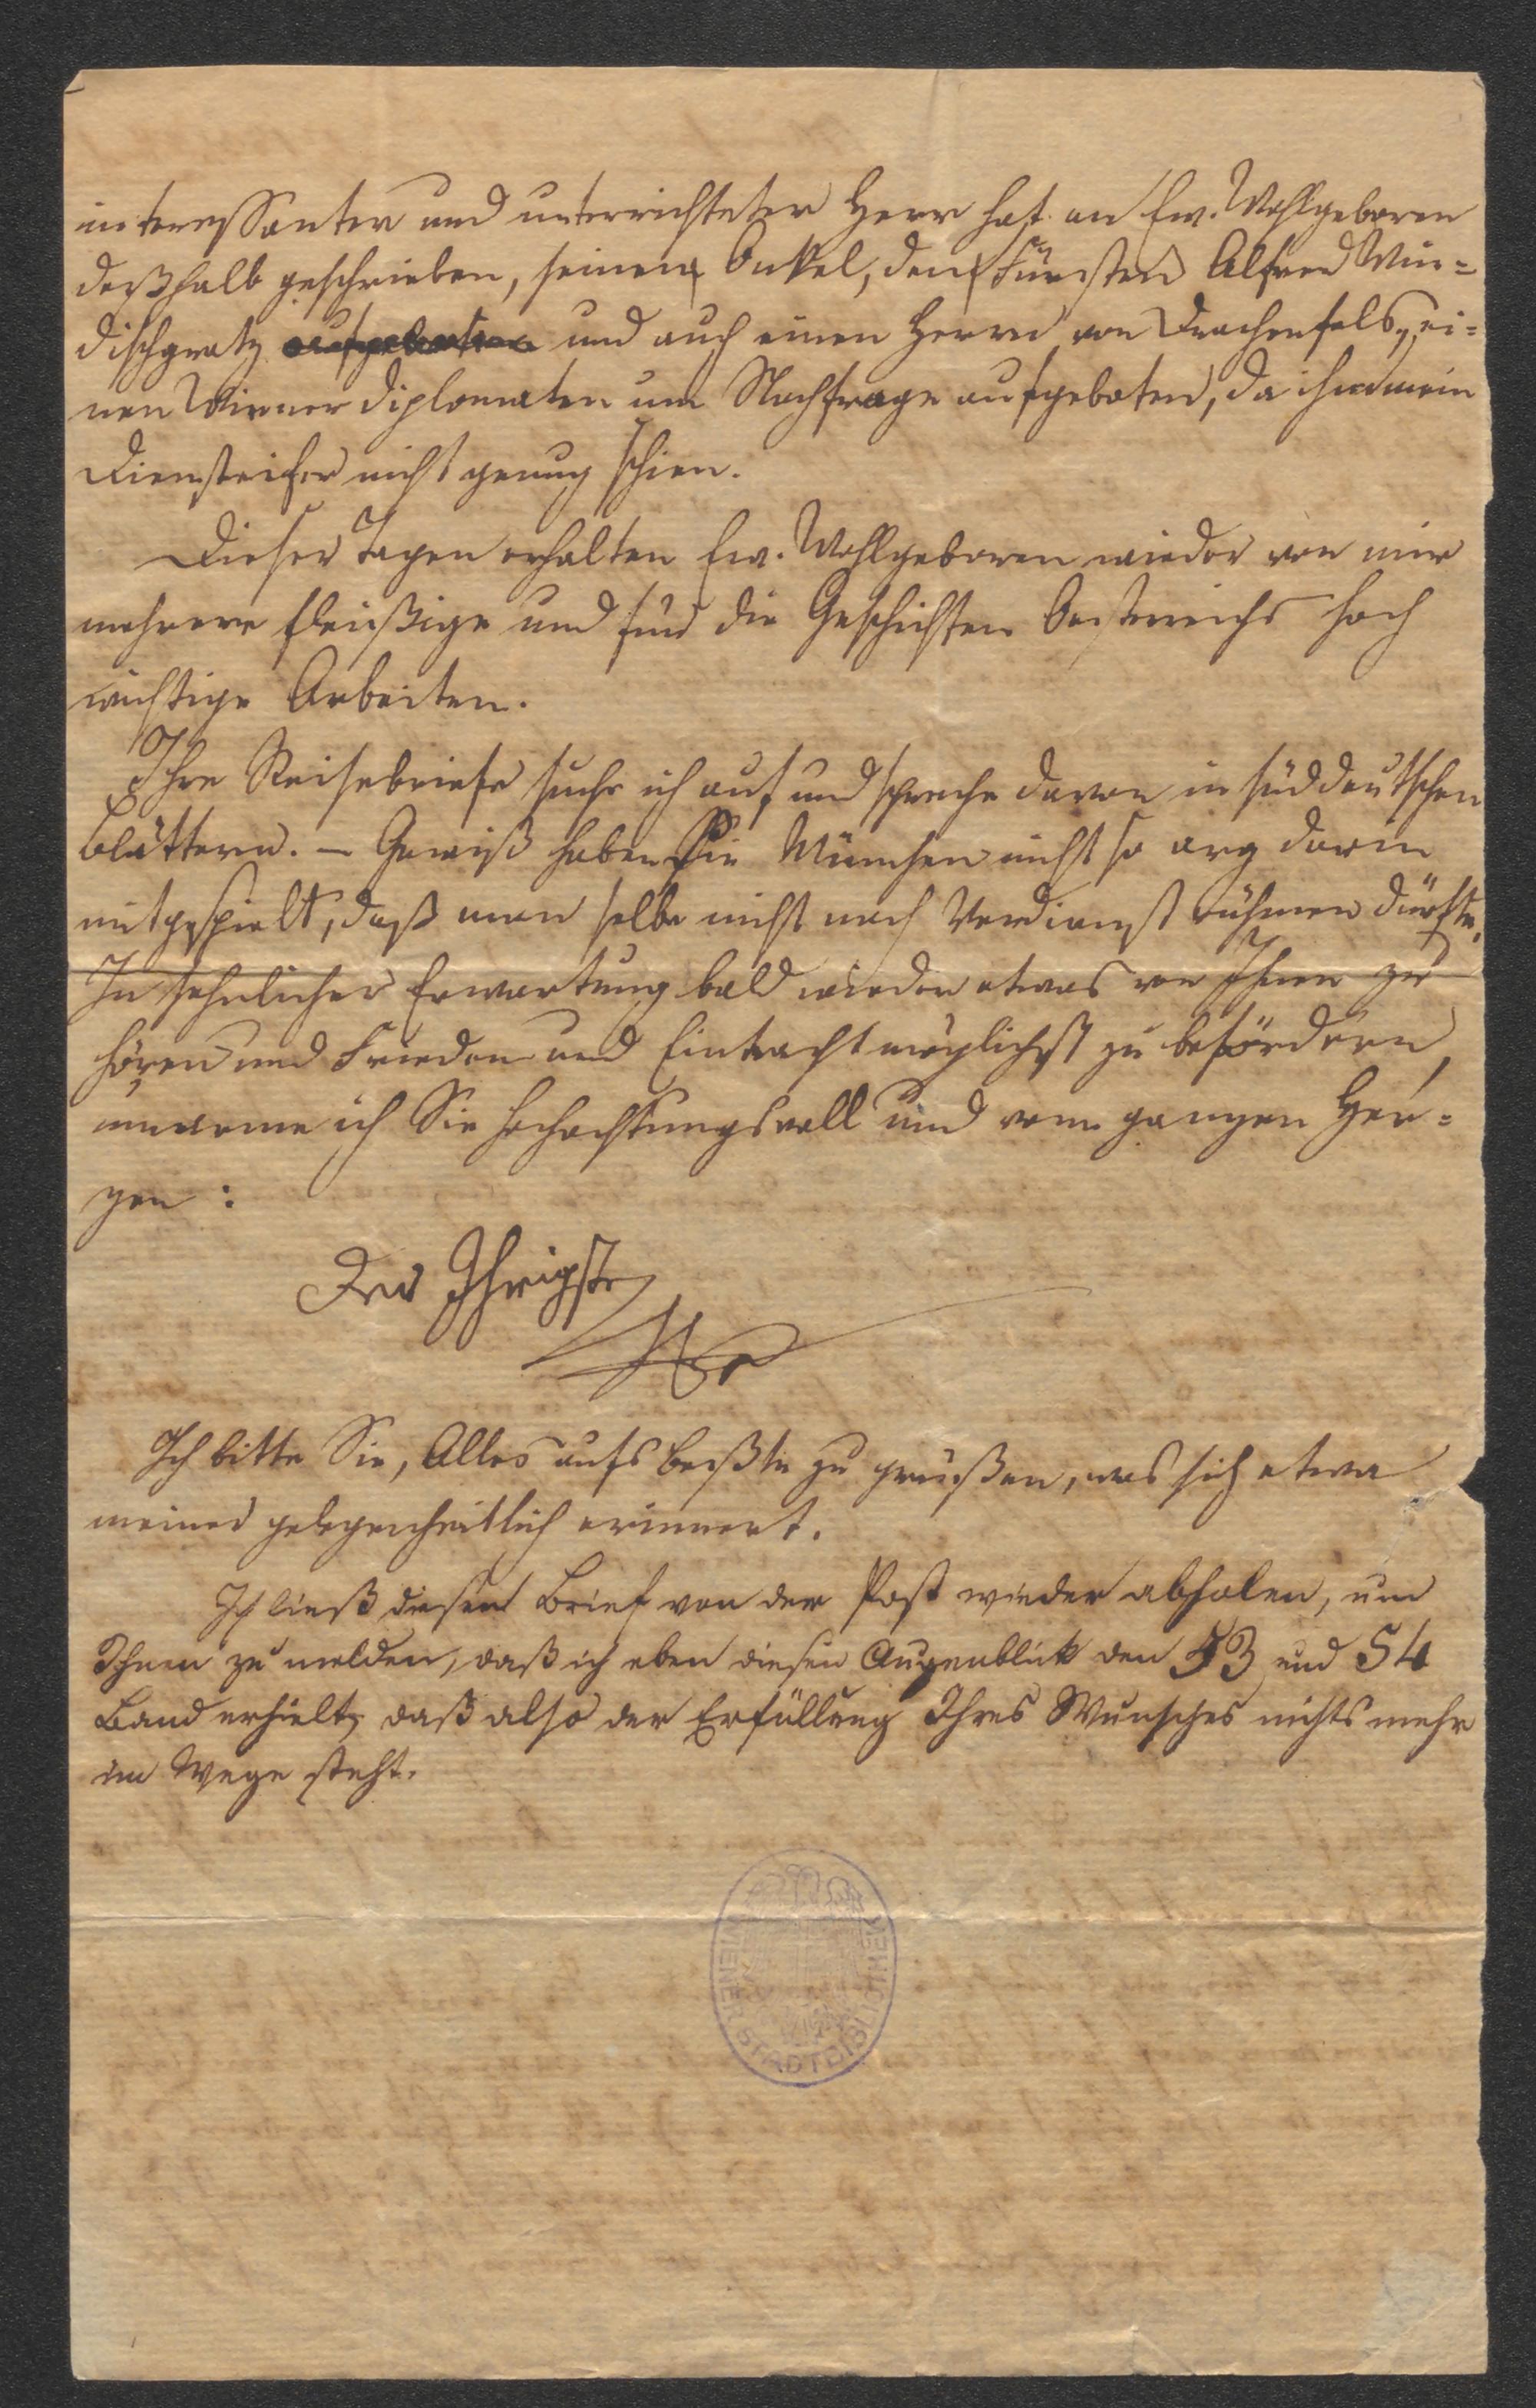 interessanter und unterrichteter Herr hat an Ew. Wohlgeboren
deßhalb geschrieben, seinen Onkel, den Fürsten Alfred Win=
dischgratz aufgeboten und auch einen Herrn von Drachenfels, ei=
nen Wiener Diplomaten um Nachfrage aufgeboten, da ihm mein
Diensteifer nicht genug schien.
Dieser Tagen erhalten Ew. Wohlgeboren wieder von mir
mehrere fleißige und für die Geschichten Oesterreichs hoch
wichtige Arbeiten.
Ihre Reisebriefe suche ich auf und spreche davon in süddeutschen
Blättern. – Gewiß haben Sie München nicht so arg darin
mitgespielt, daß man selbe nicht nach Verdienst rühmen dürfte.
In sehnlicher Erwartung bald wieder etwas von Ihnen zu
hören und Frieden und Eintracht möglichst zu befördern,
umarme ich Sie hochachtungsvoll und vom ganzen Her=
zen:
Der Ihrigste
Ich bitte Sie, Alles aufs beßte zu grüßen, was sich etwa
meiner gelegenheitlich erinnert.
Ich ließ diesen Brief von der Post wieder abholen, um
Ihnen zu melden, daß ich eben diesen Augenblick den 53 und 54
Band erhielt, daß also der Erfüllung Ihres Wunsches nichts mehr
im Wege steht.
WIENER STADTBIBLIOTHEK